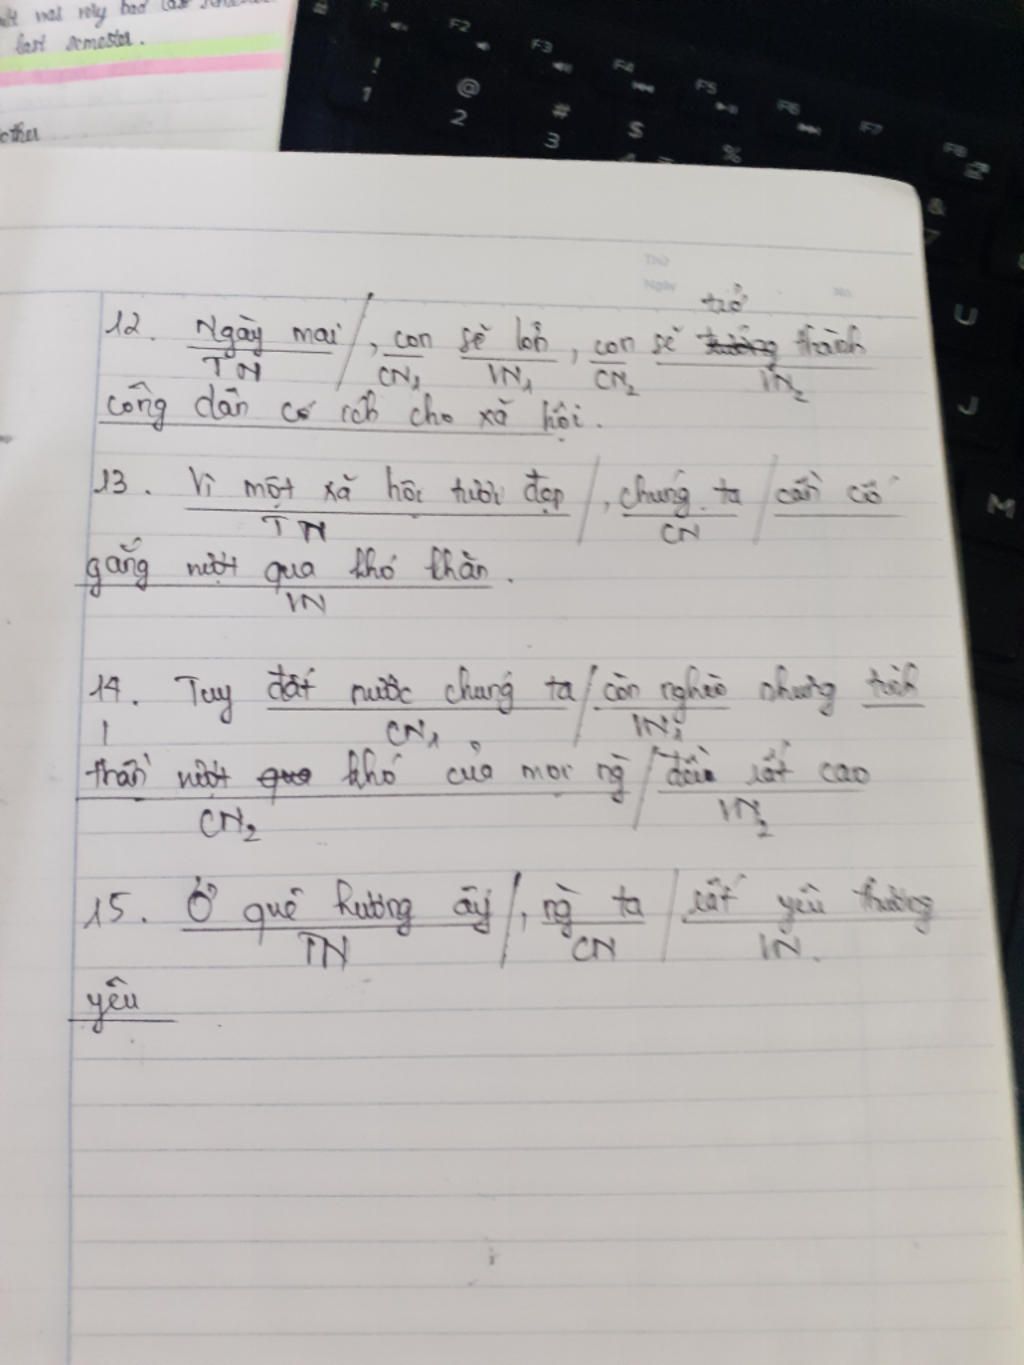 last semester.
other
F1
F2
F3
F4
F5
F6
F7
F8
!
1
@
2
#
3
$
%
&
7
U
J
M
Thứ
Ngày
No
trở
12. Ngày mai /, con sẽ lớn, con sẽ thành
TN CN1 VN1 CN2 VN2
công dân có ích cho xã hội.
13. Vì một xã hội tươi đẹp /, chúng ta / cần cố
TN CN
gắng vượt qua khó khăn.
VN
14. Tuy đất nước chúng ta / còn nghèo nhưng tinh
CN1 VN1
thần vượt khó của mọi ng / đều rất cao
CN2 VN2
15. Ở quê hương ấy /, ng ta / rất yêu thương
TN CN VN
yêu